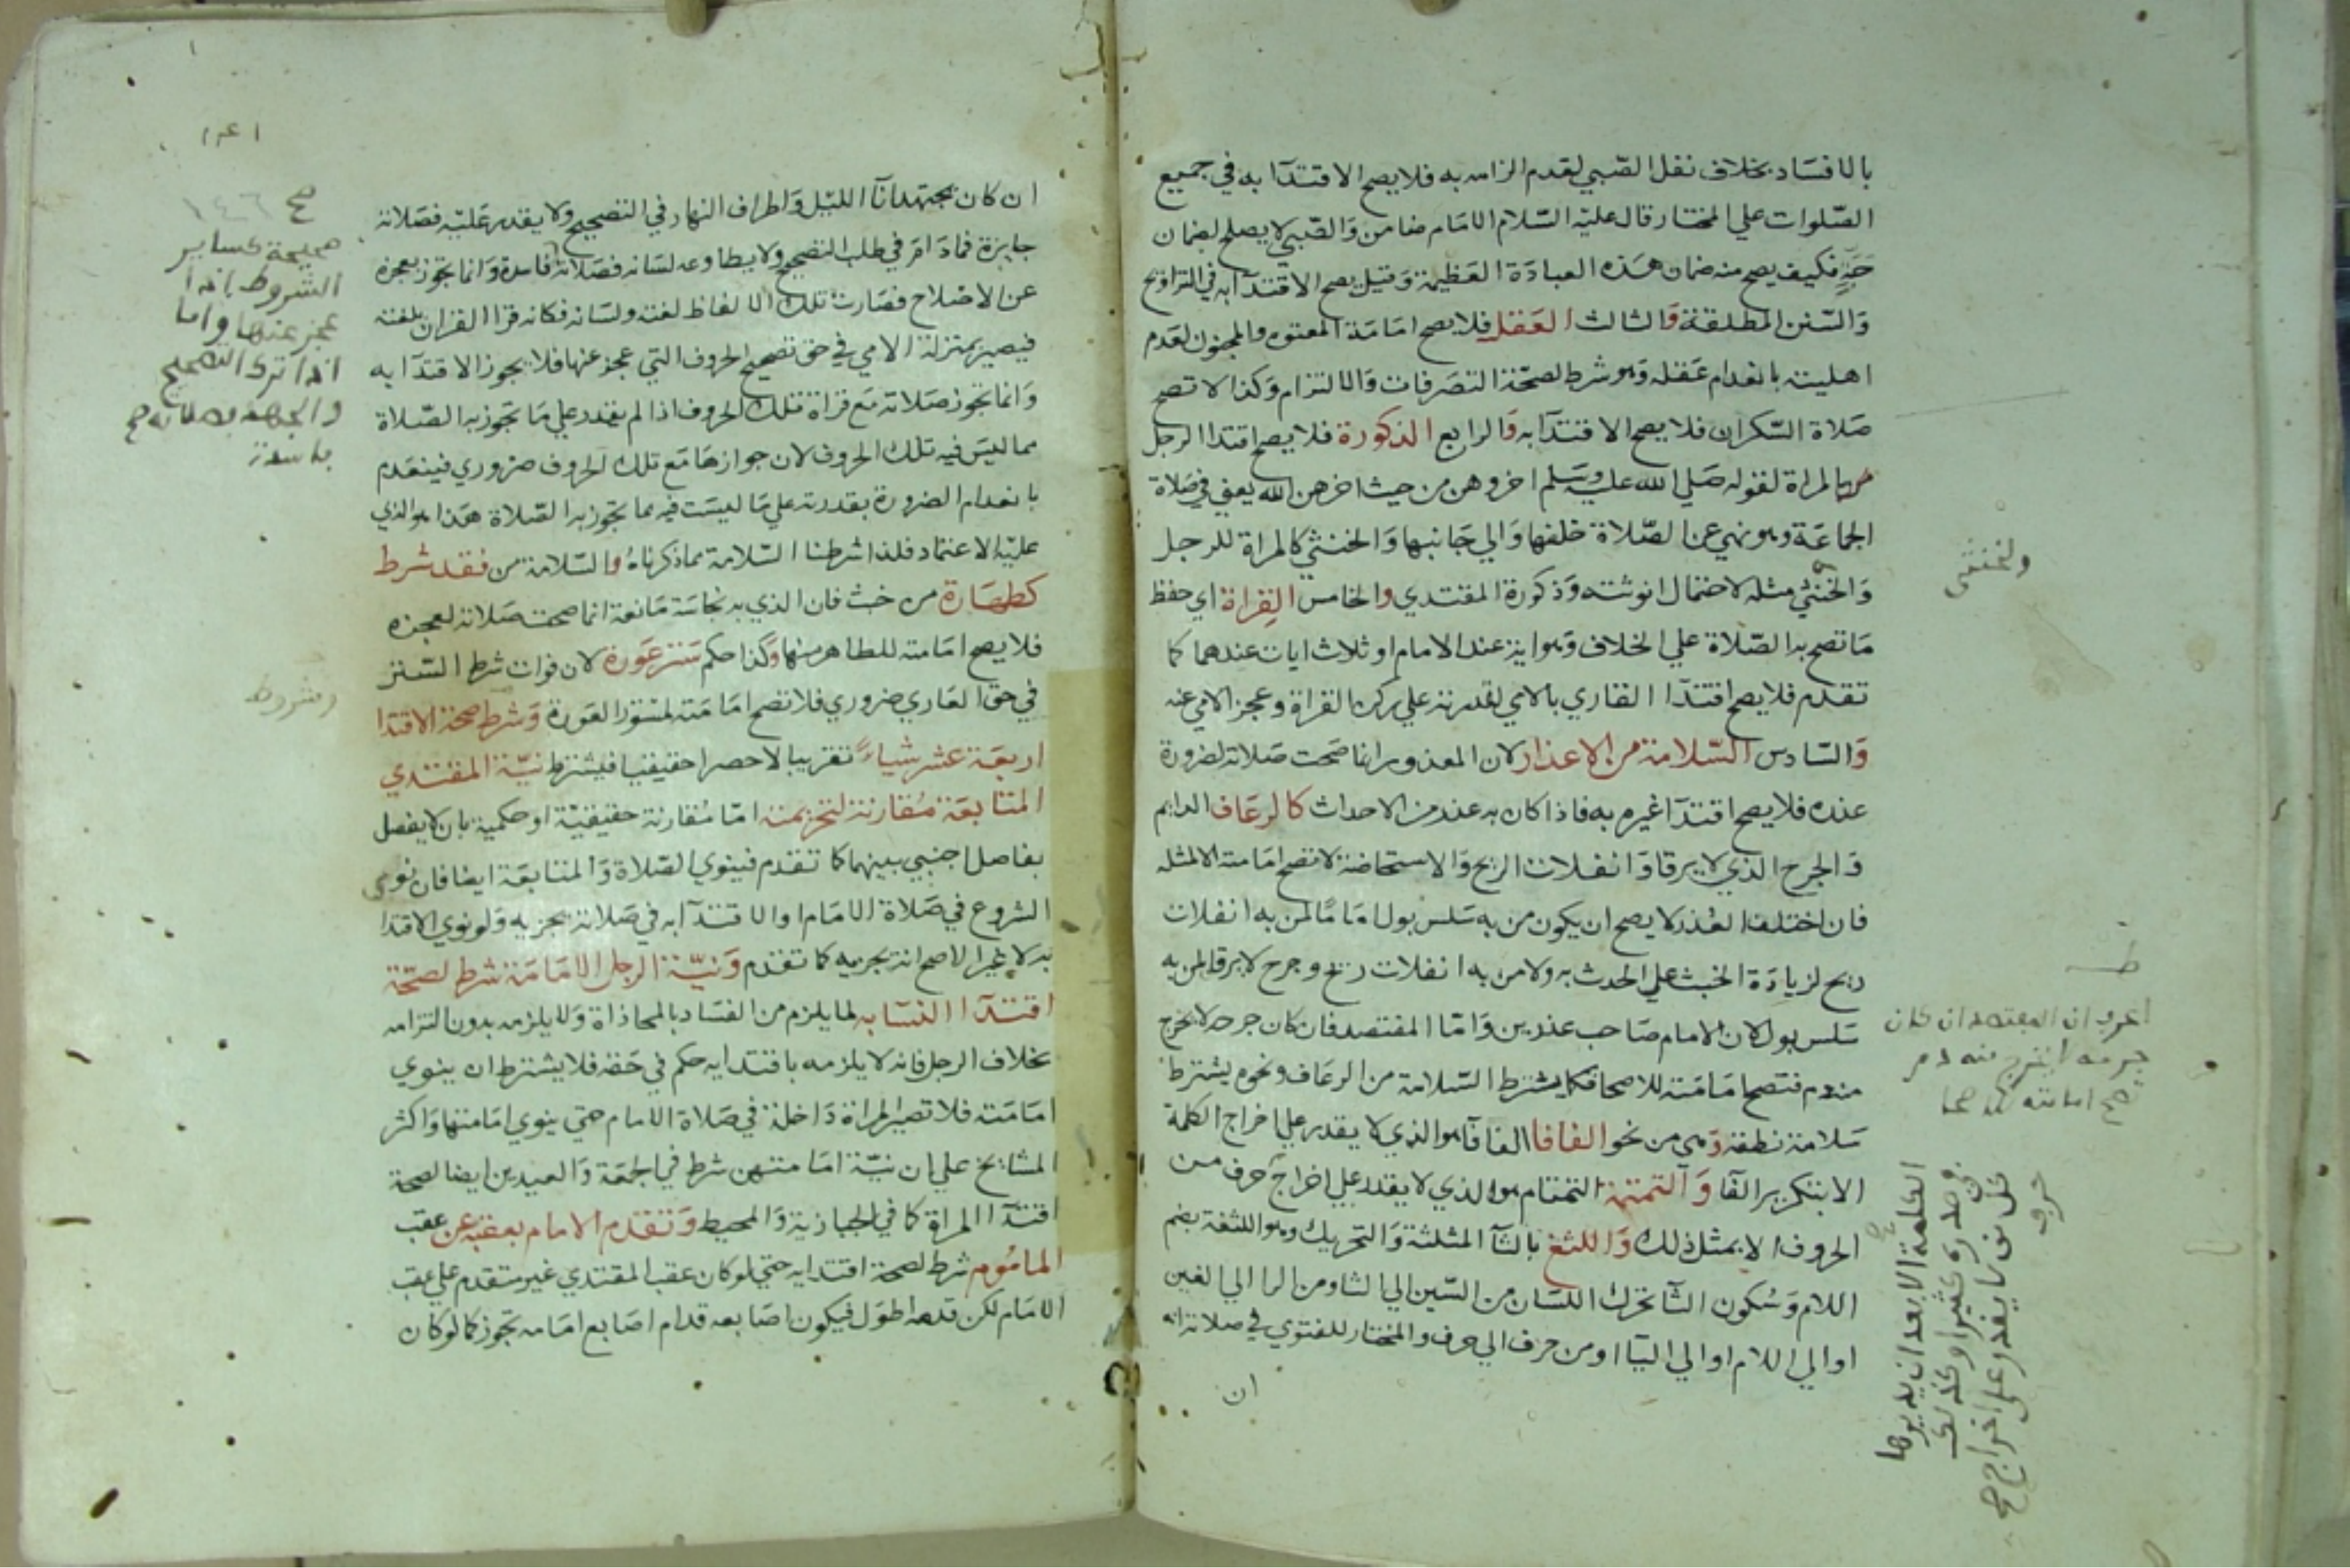 بالافساد بخلاف نفل الصّبي لعدم الزامه به فلا يصح الاقتدآ به في جميع
الصّلوات علي المختار قال عليه السّلام الامَام ضامن وَالصّبي لا يصلح لضمان
حَبّة فكيف يصح منه ضمان هَذه العبادَة العَظيمة وَقيل يصح الاقتدآ به في التراويح
وَالسّنن المطلقة وَالثالث العَقل فلا يصح امَامَة المعتوه والمجنون لعَدم
اهليته بانعدام عَقله وَهو شرط لصحّة التصَرفات وَالالتزام وَكذا لا تصح
صَلاة السّكران فلا يصح الاقتدآ به وَالرابع الذكورة فلا يصح اقتدا الرجل
بالمراة لقوله صَلي الله عليه وسَلم اخروهن من حيث اخرهن الله يعني في صَلاة
الجماعَة وهو نهي عن الصّلاة خلفها وَالي جَانبها وَالخنثي كالمراة للرجل
وَالخنثي مثله لاحتمال انوثته وَذكورة المقتدي والخامس القراة اي حفظ
مَا تصح به الصّلاة علي الخلاف وَهو اية عند الامام او ثلاث ايات عندهما كما
تقدم فلا يصح اقتدآ القاري بالامي لقدرته علي ركن القراة وعجز الامي عنه
وَالسّادس السّلامة من الاعذار لان المعذور انما صَحت صَلاته لضرورة
عذره فلا يصح اقتدآ غيره به فاذا كان به عذر من الاحداث كالرعَاف الدايم
وَالجرح الذي لا يرقا وَانفلات الريح وَالاستحاضة لا تصح امَامته الا لمثله
فان اختلف العُذر لا يصح ان يكون من به سَلس بول امَامًا لمن به انفلات
ريح لزيادَة الخبث علي الحدث به ولا من به انفلات ريح وجرح لا يرقا لمن به
سَلس بول لان الامام صَاحب عذرين وَامّا المفتصد فان كان جرحه لا يخرج
منه دم فتصح امَامَته للاصحا فكما يشترط السّلامة من الرعَاف ونحوه يشترط
سَلامة نطقه وَهي من نحو الفافا الفافآ هو الذي لا يقدر علي اخراج الكلمة
الا بتكرير الفآ وَالتمتمة التمتام هو الذي لا يقدر علي اخراج حرف من
الحروف الا بمثل ذلك وَاللثغ بالثآ المثلثة وَالتحريك وهو اللثغة بضم
اللام وَسُكون الثآ تحرك اللسَان من السّين الي الثا ومن الرا الي الغين
او الي اللام او الي اليآ او من حرف الي حرف والمختار للفتوي في صلاته انه
ان
ولخنثى
ط
اعرف ان المفتصد ان كان
جرحه لا يخرج منه دم
تصح امامته للاصحا
الكلمة الا بعد ان يديرها
في صدره كثيرا وكذلك
كل من لا يقدر على اخراج
حرف
صح
١٤٦
ان كان مجتهدا آنآ الليَل وَاطراف النهار في التصحيح ولا يقدر عَليه فصَلاته
جايزة فمادَام في طلب التصحيح ولا يطاوعه لسَانه فصَلاته فاسدة وَانما تجوز بعجزه
عن الاصْلاح فصَارت تلك الالفاظ لغته ولسَانه فكانه قرا القران بلغته
فيصير بمنزلة الامي في حق تصحيح الحروف التي عجز عنها فلا يجوز الاقتدآ به
وَانما تجوز صَلاته مَع قراة تلك الحروف اذا لم يقدر علي مَا تجوز به الصّلاة
مما ليسَ فيه تلك الحروف لان جوازهَا مَع تلك الحروف ضروري فينعَدم
بانعدام الضرورة بقدرته علي مَا ليسَت فيه مما تجوز به الصّلاة هَذا هو الذي
عليه الاعتماد فلذا شرطنا السّلامة مما ذكرناهُ وَالسّلامة من فقد شرط
كطهَارة من خبث فان الذي به نجاسَة مَانعة انما صحت صَلاته لعجزه
فلا يصح امَامته للطاهر منها وَكذا حكم سَترعَورة لان فوات شرط السّتر
في حق العَاري ضروري فلا تصح امَامَته لمستور العَورة وَشرط صحة الاقتدا
اربعَة عشر شياءً تقريبا لا حصرا حقيقيا فيشترط نيّة المقتدي
المتابعَة مُقارنة لتحريمته امّا مُقارنة حقيقيّة او حكمية بان لا يفصل
بفاصل اجنبي بينهما كما تقدم فينوي الصّلاة وَالمتابعَة ايضا فان نوي
الشروع في صَلاة الامَام او الاقتدآ به في صَلاته يجزيه وَلو نوي الاقتدا
به لا غير الاصح انه يجزيه كما تقدم وَنيّة الرجل الامَامَة شرط لصحّة
اقتدآ النسَا به لما يلزم من الفسَاد بالمحاذاة وَلا يلزمه بدون التزامه
بخلاف الرجل فانه لا يلزمه باقتدايه حكم في حَقه فلا يشترط ان ينوي
امَامَته فلا تصير المراة دَاخلة في صَلاة الامام حتي ينوي امَامتها وَاكثر
المشايخ علي ان نيّة امَامتهن شرط في الجمَعة وَالعيدين ايضا لصحة
اقتدآ المراة كما في الخبازية وَالمحيط وَتقدم الامام بعقبه عن عقب
المامُوم شرط لصحة اقتدايه حتي لو كان عقب المقتدي غير متقدم علي عقب
الامَام لكن قدمه اطوَل فيكون اصَابعه قدام اصَابع امَامه تجوز كما لو كان
١٤١
صح ١٤٦
صحيحة كساير
الشروط اذا
عجز عنها واما
اذا ترك التصحيح
والجهد فصلاته
فاسدة
صح
وشروط